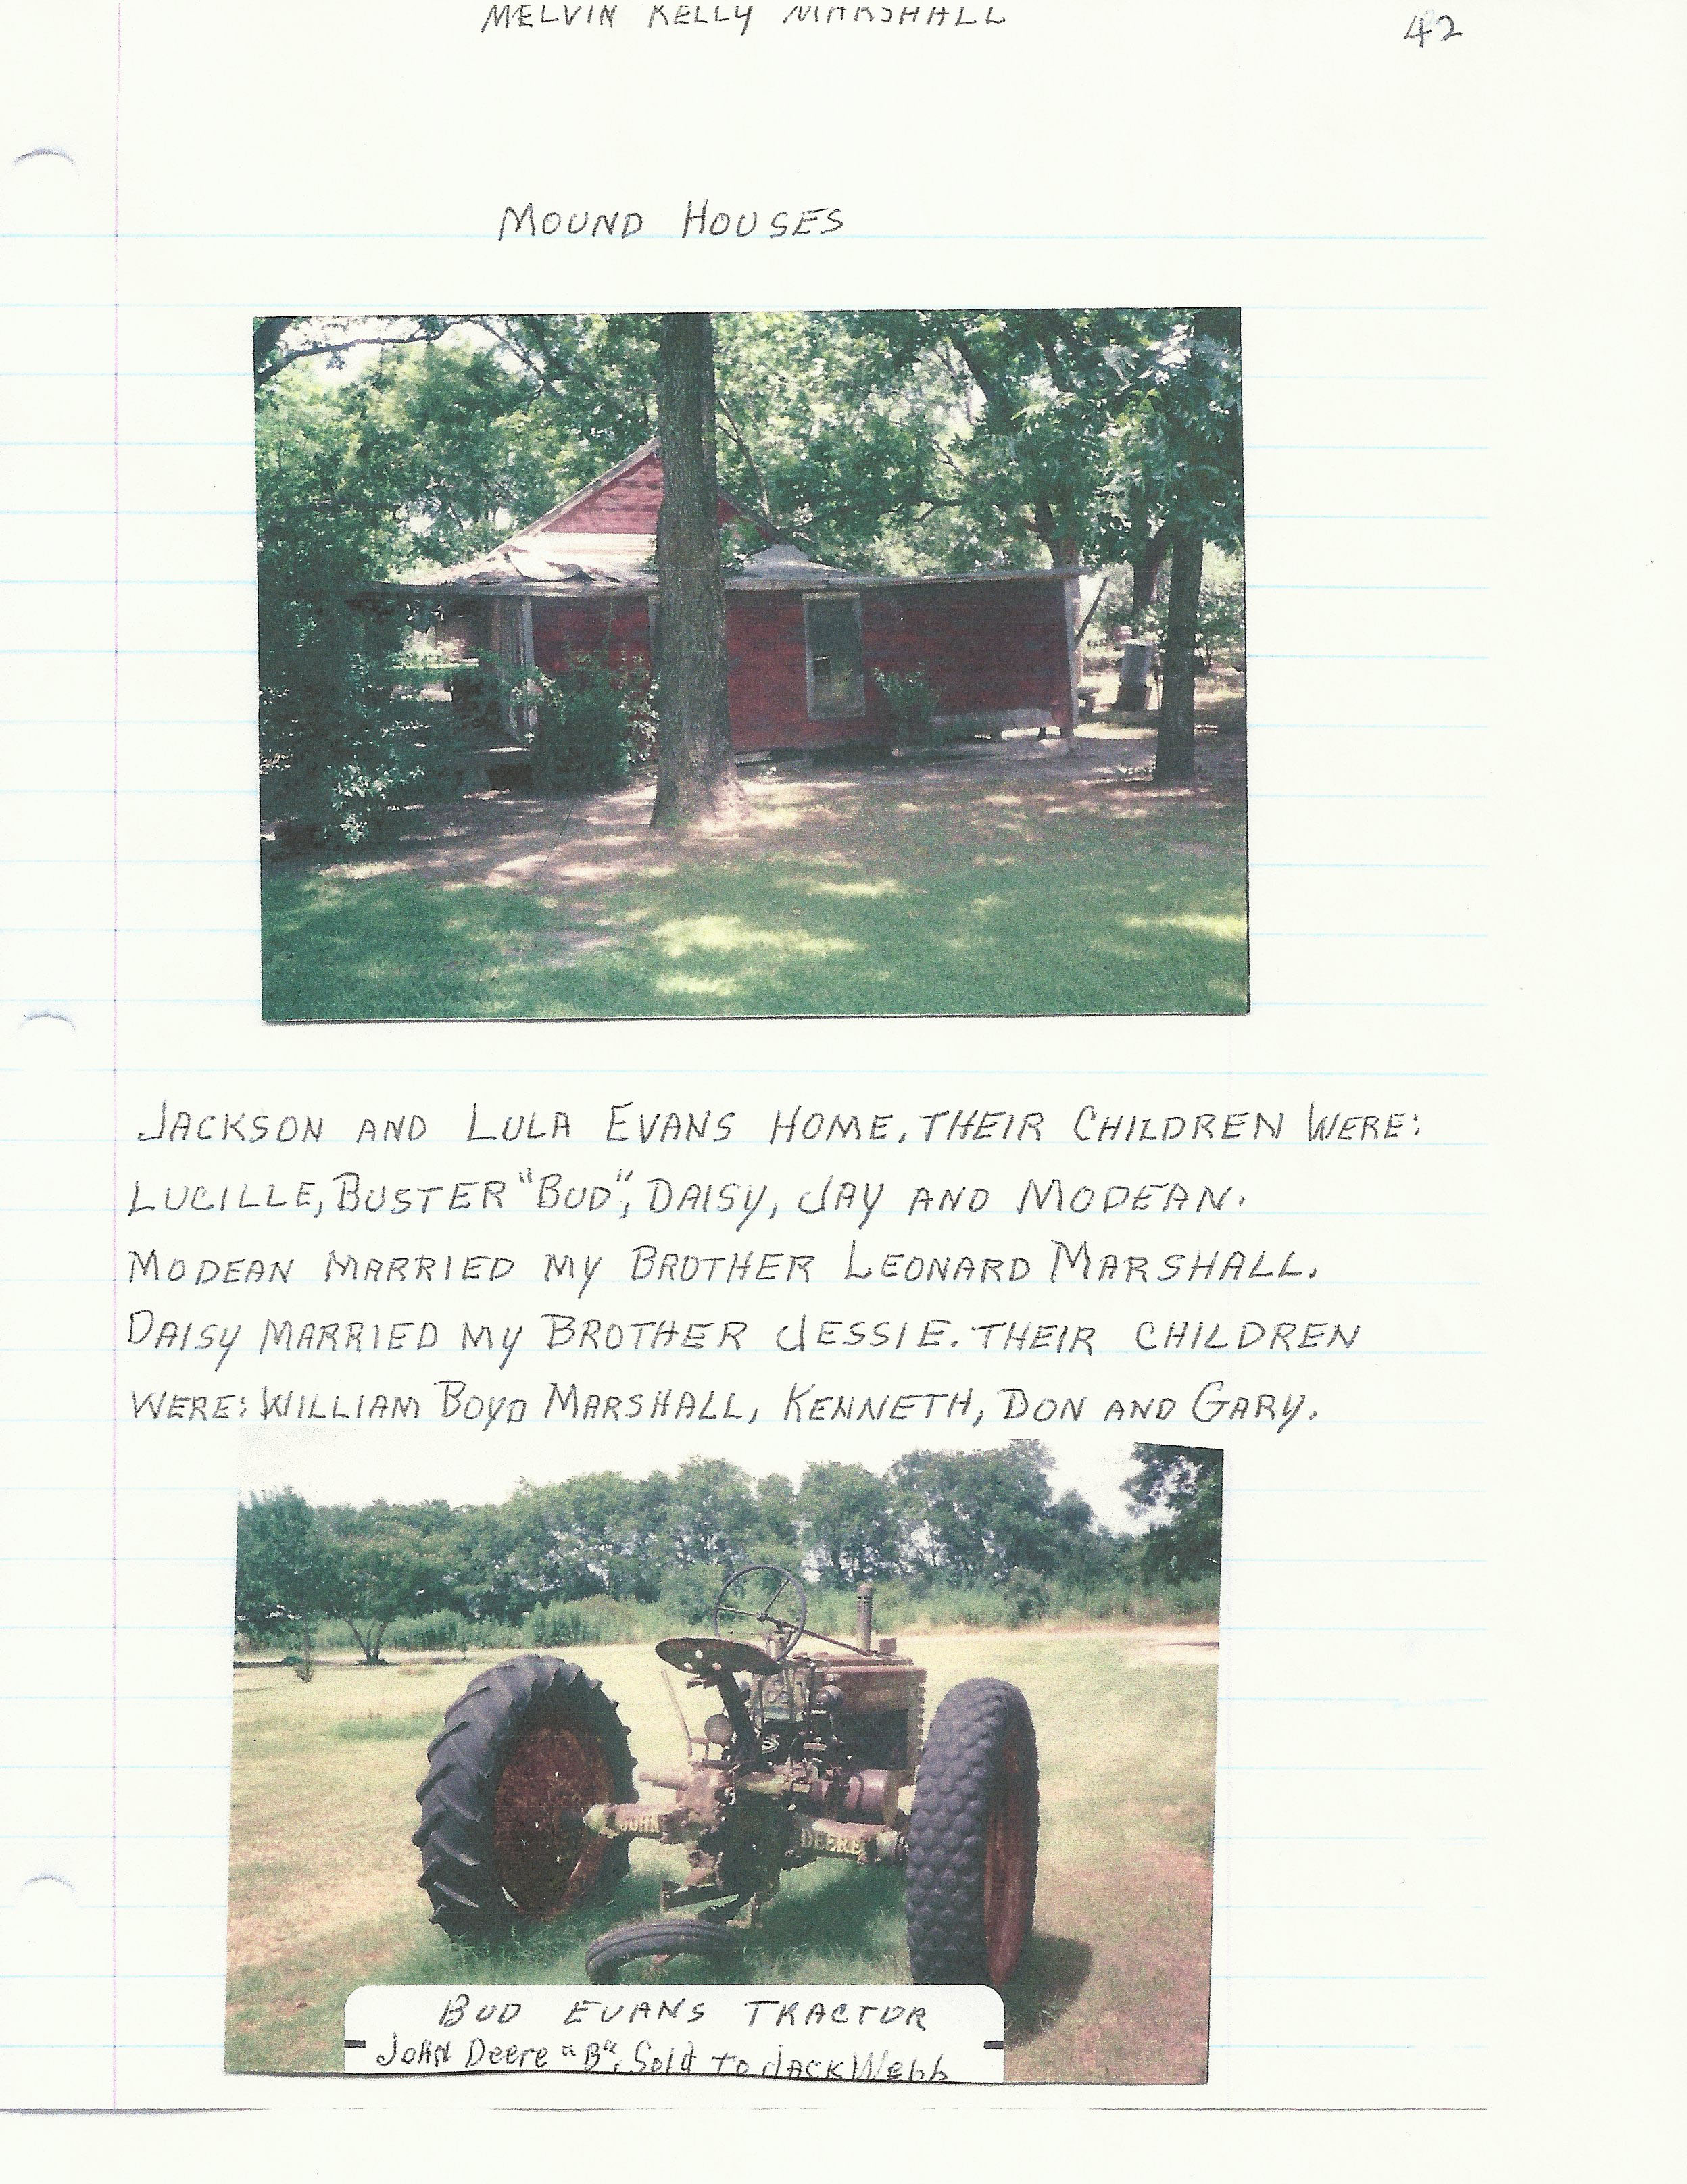 MELVIN KELLY MARSHALL
42
MOUND HOUSES
JACKSON AND LULA EVANS HOME. THEIR CHILDREN WERE:
LUCILLE, BUSTER "BUD", DAISY, JAY AND MODEAN.
MODEAN MARRIED MY BROTHER LEONARD MARSHALL.
DAISY MARRIED MY BROTHER JESSIE. THEIR CHILDREN
WERE: WILLIAM BOYD MARSHALL, KENNETH, DON AND GARY.
JOHN DEERE
BUD EVANS TRACTOR
JOHN Deere "B", Sold to JACK Webb